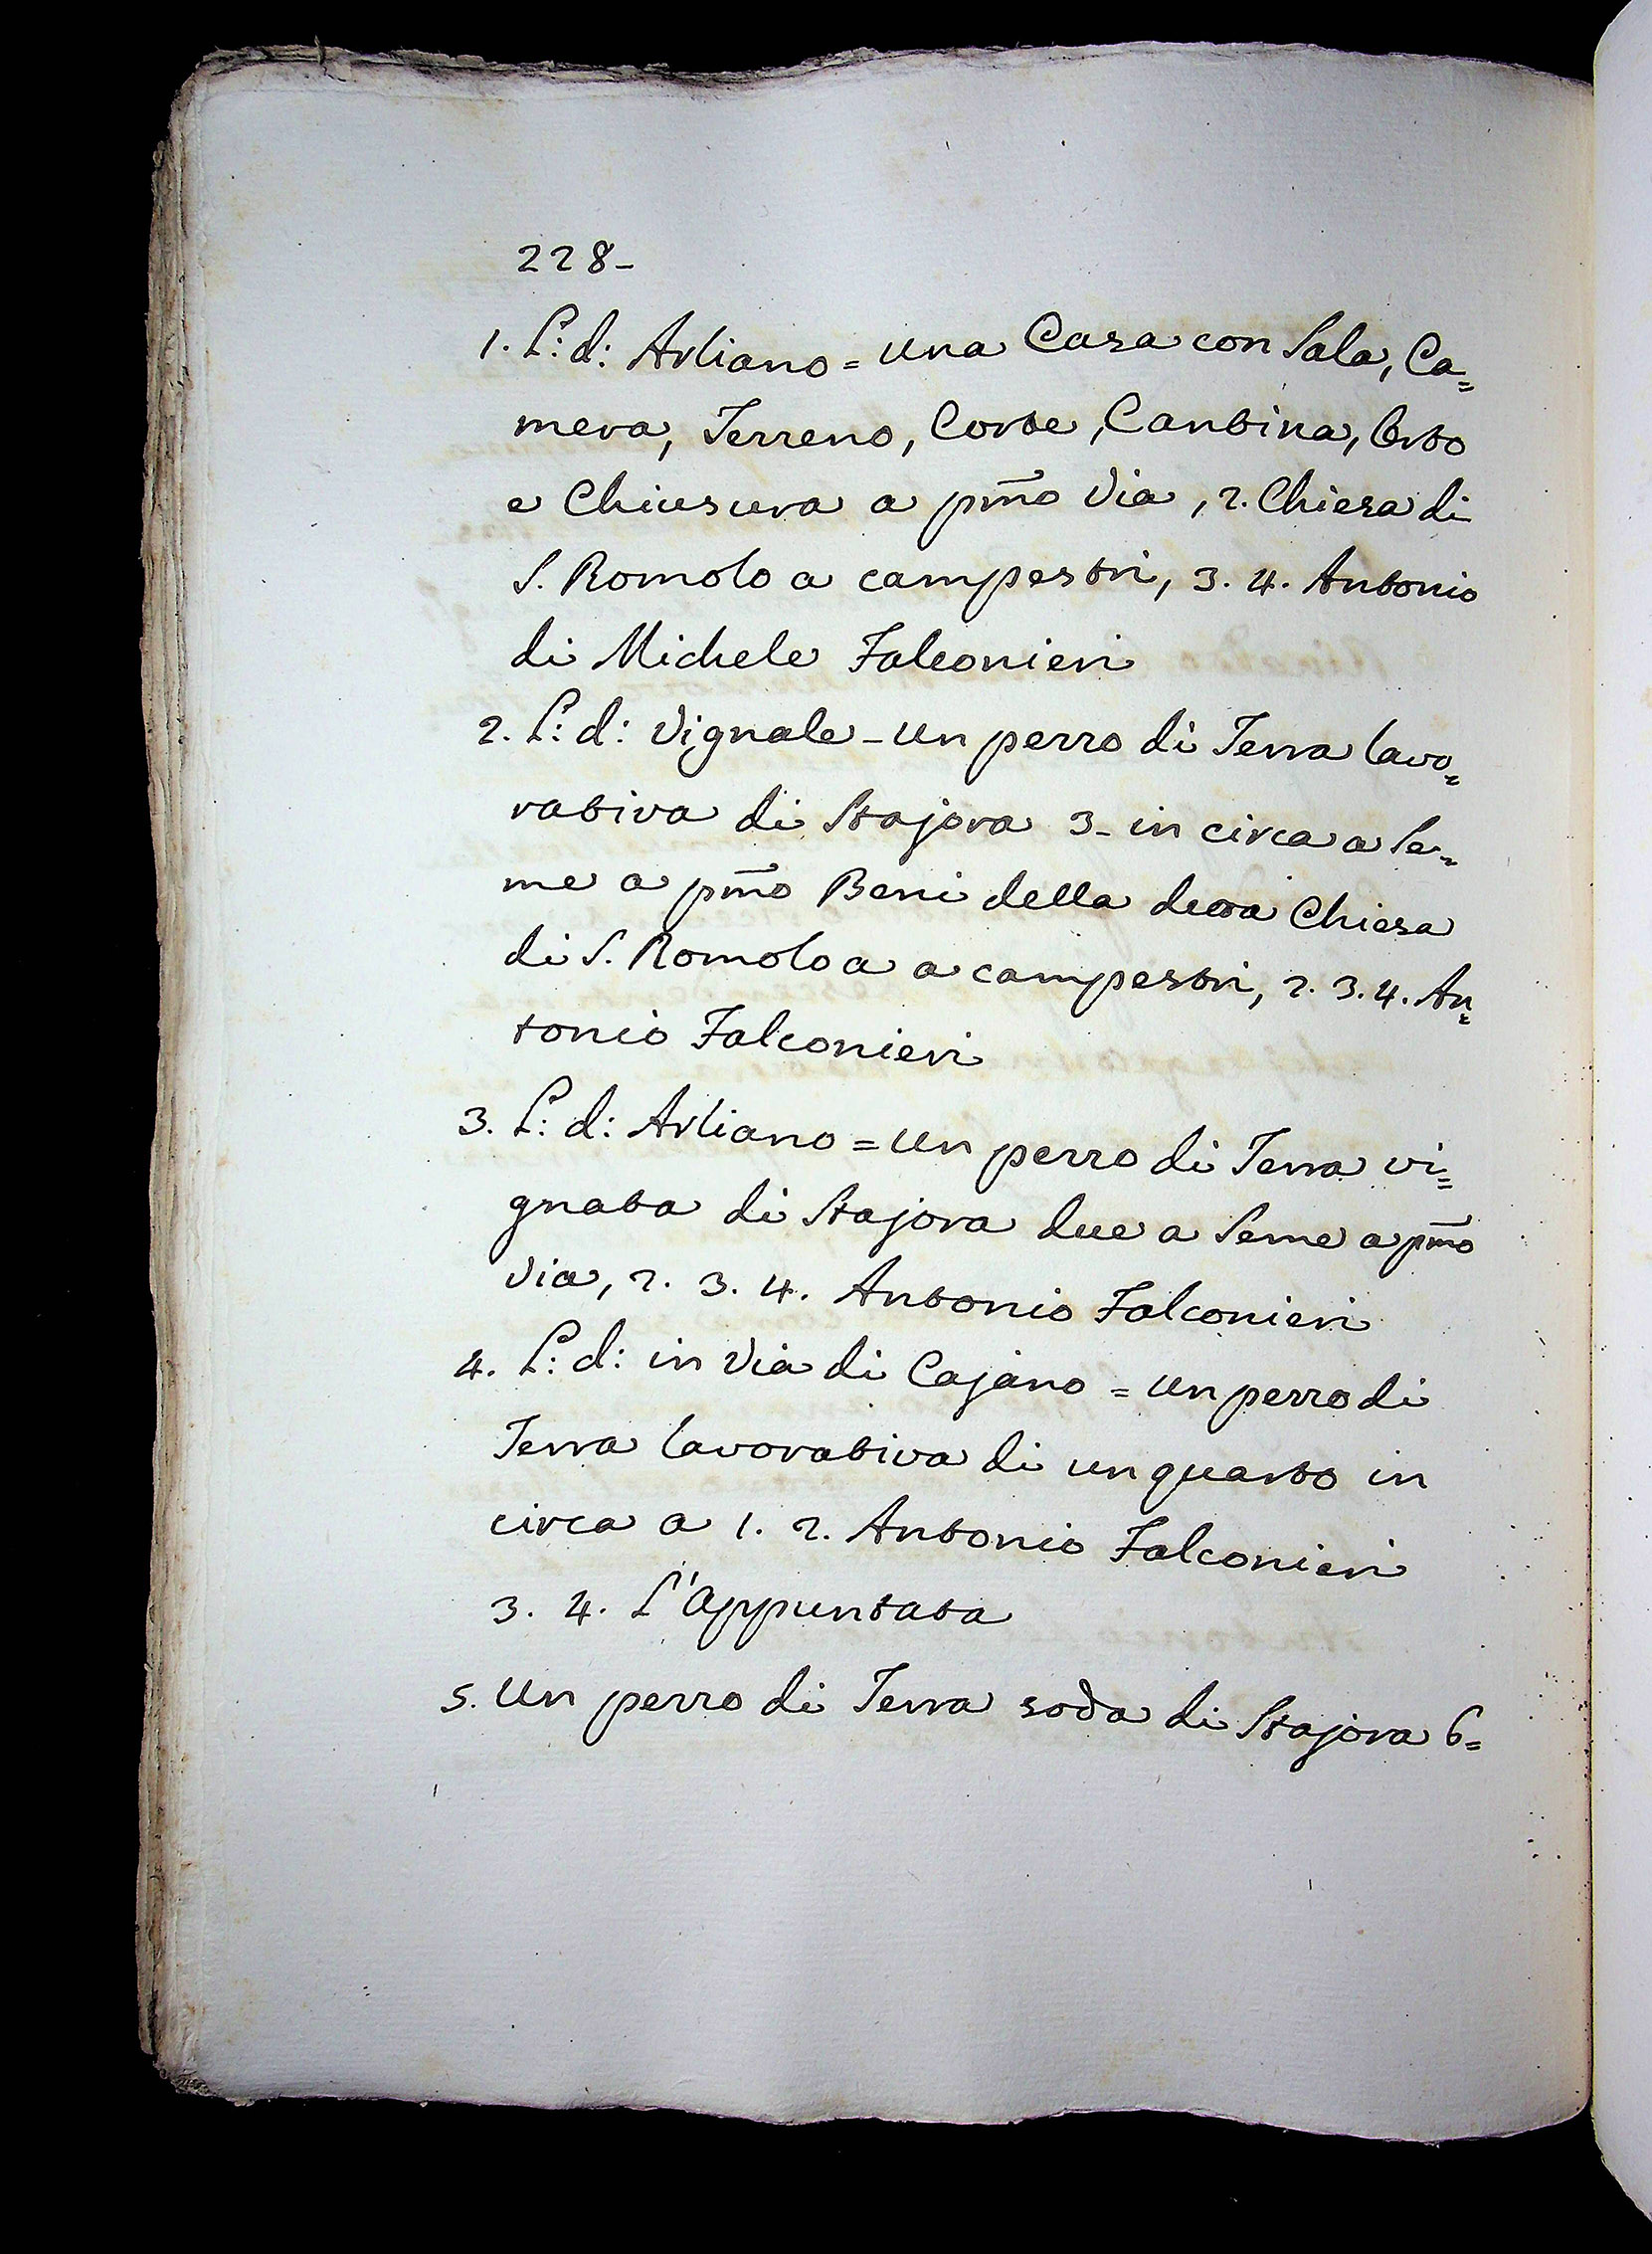 228-
1. L: d: Arliano = una Casa con Sala, Ca=
mera, Terreno, Corte, Cantina, Orto
e Chiusura a pm̃o Via, 2. Chiesa di
S. Romolo a campestri, 3. 4. Antonio
di Michele Falconieri
2. L: d: Vignale - un pezzo di Terra lavo=
rativa di Stajora 3- in circa a Se=
me a pm̃o Beni della detta Chiesa
di S. Romolo a a campestri, 2. 3. 4. An=
tonio Falconieri
3. L: d: Arliano = un pezzo di Terra vi=
gnata di Stajora due a Seme a pm̃o
Via, 2. 3. 4. Antonio Falconieri
4. L: d: in Via di Cajano = un pezzo di
Terra lavorativa di un quarto in
circa a 1. 2. Antonio Falconieri
3. 4. L'Appuntata
5. Un pezzo di Terra soda di Stajora 6=